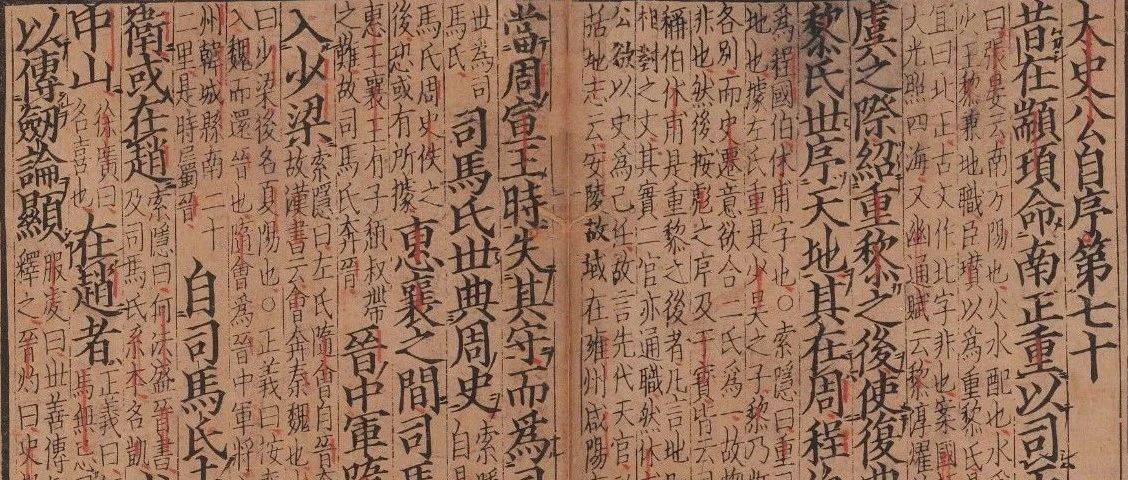 太史公自序第七十
昔在顓頊命南正重以司
曰張晏云南方陽也火水配也水爲
少正黎兼地職臣瓚以爲重黎氏是
宜曰北正古文作北字非也案國
大光照四海又幽通賦云黎淳耀
虞之際紹重黎之後使復典
黎氏世序天地其在周程
爲程國伯休甫字也○索隱曰重
地也據左氏重是少昊之子黎乃
各別而史遷意欲合二氏爲一故
非也然後按彪之序及干寳皆云
稱伯休甫是重黎之後者凡言地
相對之文其實二官亦通職然休
公欲以史爲己任故言先代天官
括地志云安陵故城在雍州咸陽
當周宣王時失其守而爲司
世爲司
馬氏
司馬氏世典周史
索隱
自是
馬氏周史佚之
後恐或有所據
惠襄之間司馬
惠王襄王有子穨叔帶
之難故司馬氏奔晉
晉中軍隨
入少梁
索隱曰左氏隨會自晉奔
故漢書云會奔秦魏也
曰少梁後名夏陽也○正義曰按春
入魏而還晉也隨會爲晉中軍將
州韓城縣南二十
二里是時屬晉
自司馬氏去
衛或在趙
索隱曰何法盛晉書
及司馬氏系本名凱
中山
徐廣曰
名喜也
在趙者
正義曰
馬無忌
以傳劒論顯
服虔曰世善傳
釋之晉灼曰史